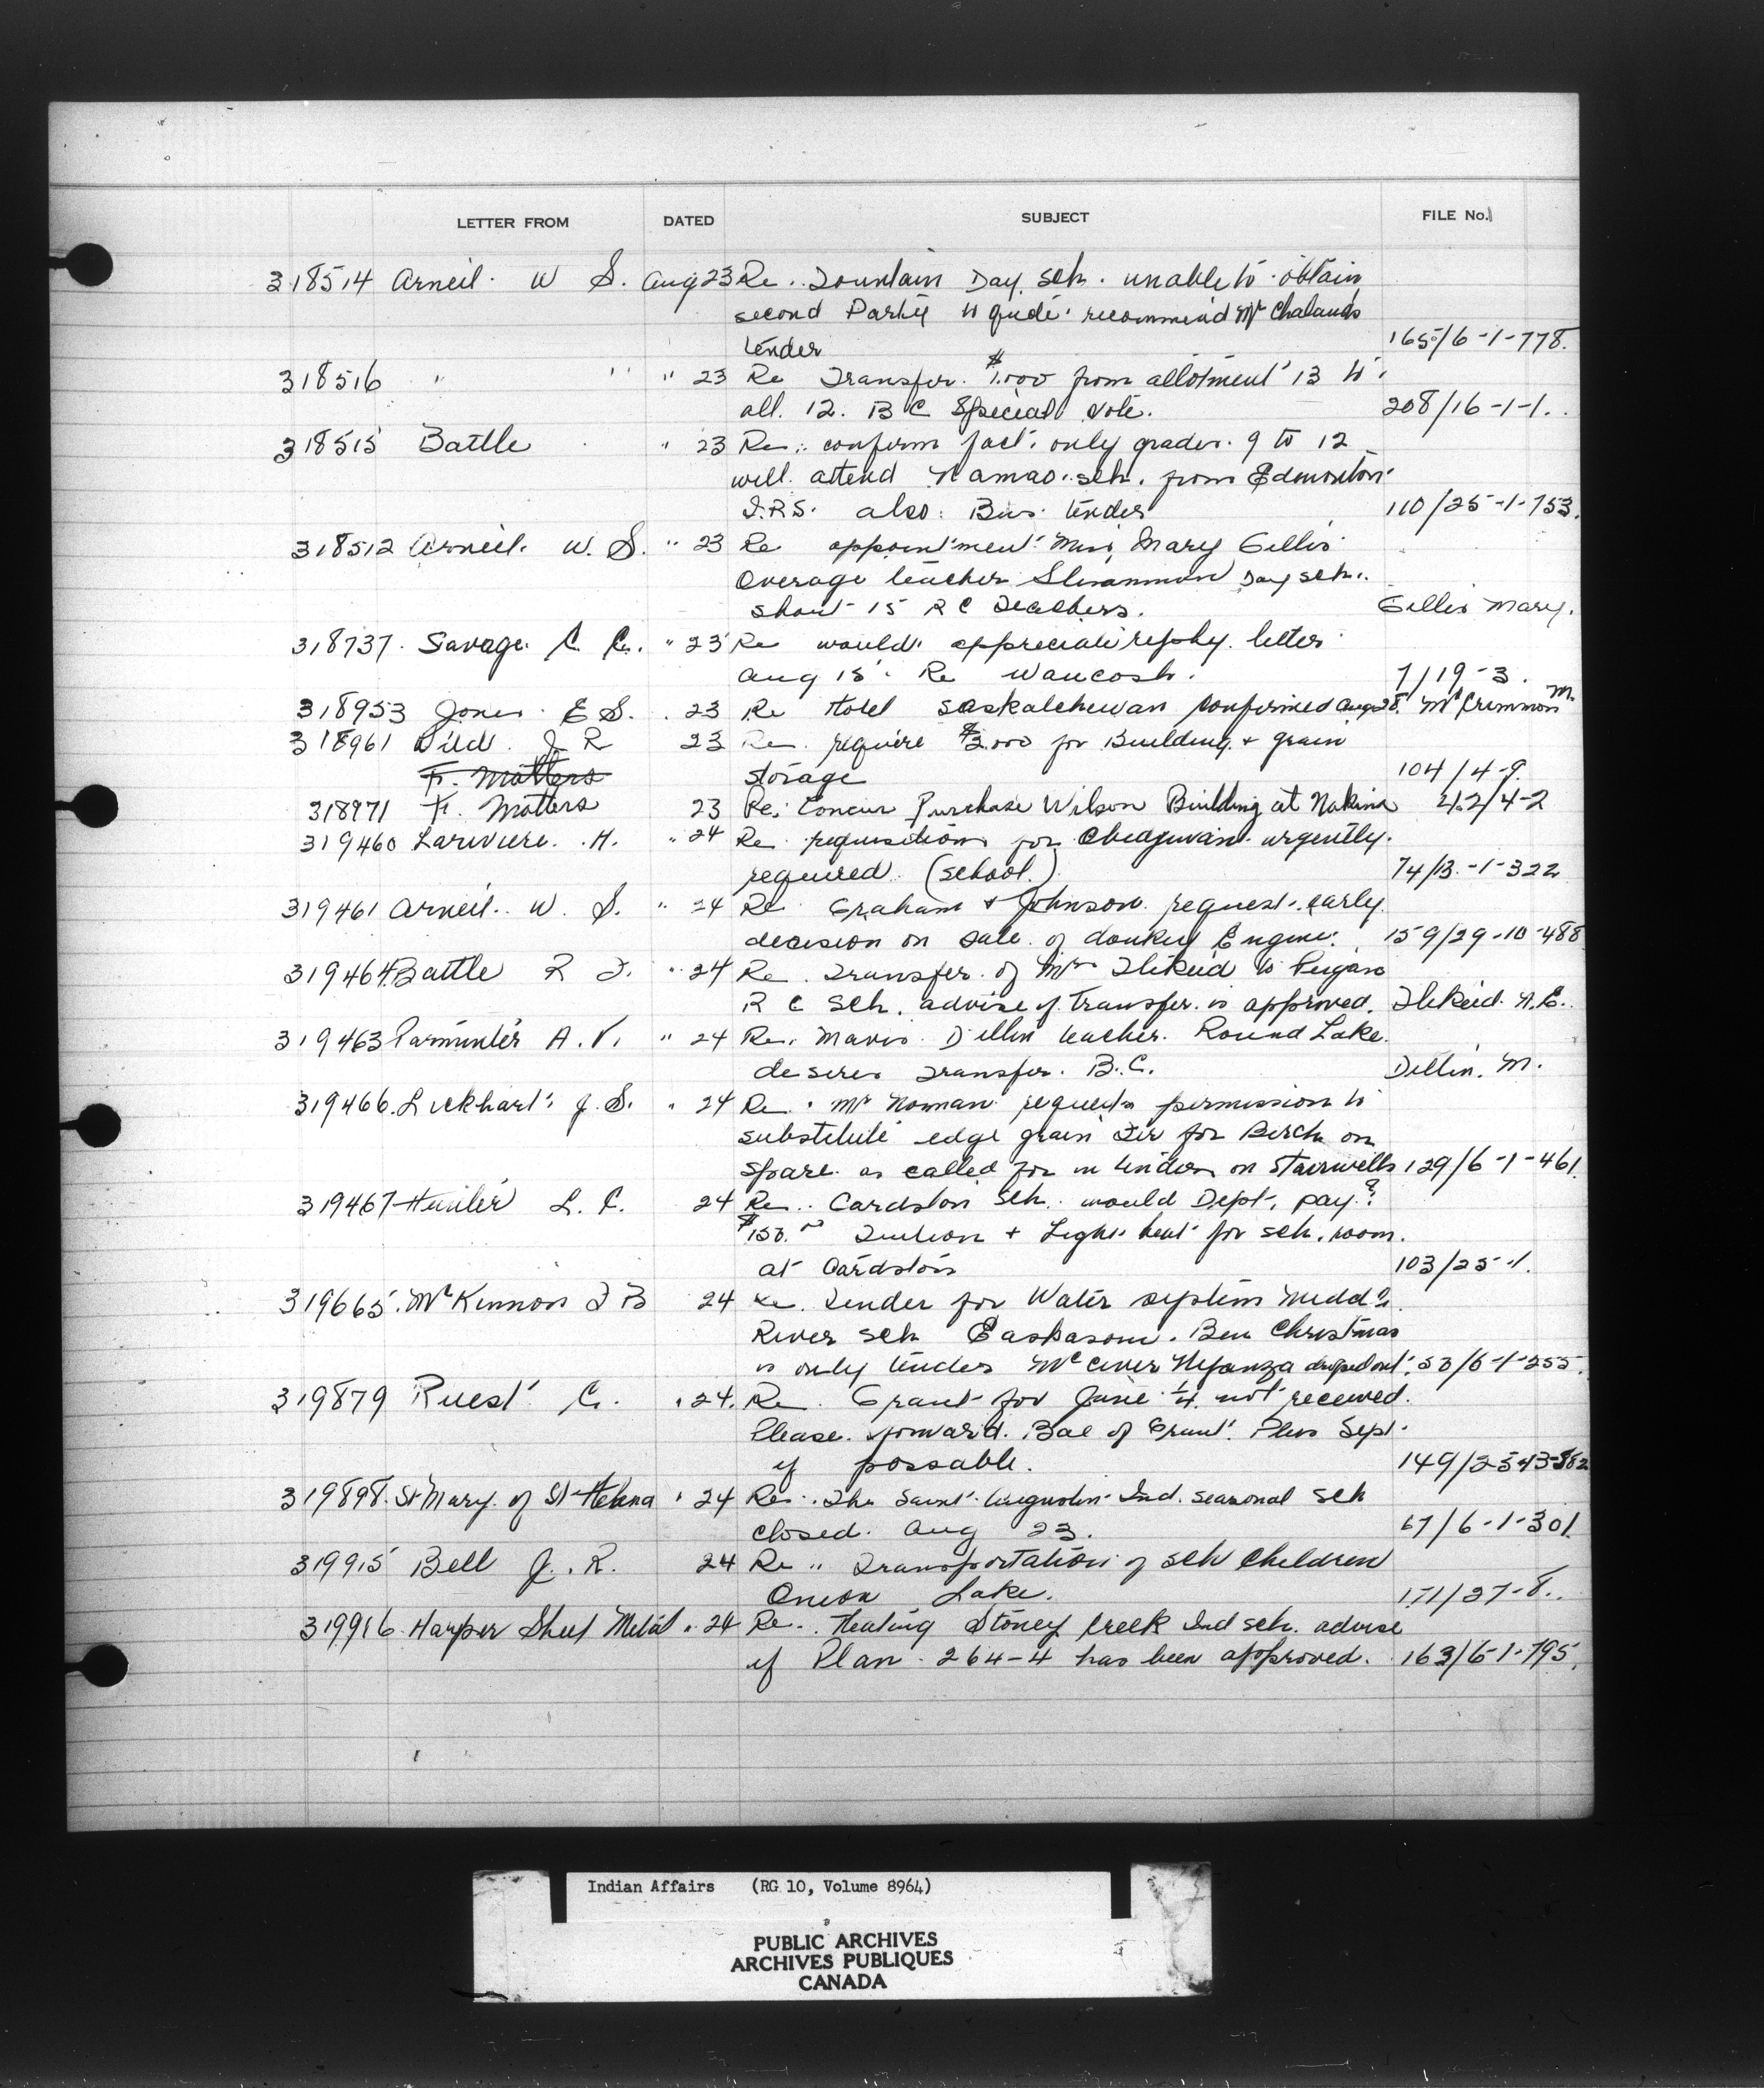 LETTER FROM DATED SUBJECT FILE No.
318514 Arneil. W S. Aug 23 Re. Fountain Day. Sch. unable to obtain
second Party to quote. recommend Mr Chalands
tender 165/6-1-778.
318516 " " " 23 Re Transfer. $1,000 from allotment 13 to
all. 12. B C Special Vote. 208/16-1-1.
318515 Battle " 23 Re: confirm fact. only grades. 9 to 12
will attend Namao. sch. from Edmonton
I.R.S. also. Bus. tender 110/25-1-753.
318512 Arneil. W. S. " 23 Re appointment Miss Mary Gillis
Overage teacher Sliammon Day sch.
short 15 R C Teachers. Gillis Mary.
318737. Savage. C. C. " 23 Re would appreciate reply. letter
Aug 15. Re Waucosh. 7/19-3.
318953 Jones. E S. . 23 Re Hotel Saskatchewan confirmed Aug 28. McCrimmon M.
318961 Wild. J R 23 Re. require $2,000 for Building + grain
F. Matters storage 104/4-9.
318971 F. Matters 23 Re: Concur Purchase Wilson Building at Nakina 42/4-2
319460 Lariviere. H. " 24 Re requisitions for urgently.
required. (school.) 74/13-1-322
319461 Arneil. W. S. " 24 Re Graham & Johnson request. early
decision on sale of donkey Engine. 159/29-10-488
319464 Battle R F. " 24 Re Transfer. of to Peigan
R C Sch. advise if transfer. is approved.
319463 Parminter A. V. " 24 Re. Mavis Dillin teacher. Round Lake.
desires Transfer. B.C. Dillin. M.
319466. Lockhart. J. S. " 24 Re. Mr Norman requests permission to
substitute edge grain Fir for Birch on
as called for in tender on Stairwells 129/6-1-461.
319467 Hunter L. C. 24 Re.. Cardston Sch. would Dept. pay?
$150.00 Tuition + Light heat for sch. room.
at Cardston 103/25-1.
319665. McKinnon F B 24 Re. Tender for Water system Middle
River Sch Eskasoni. Ben Christmas
is only tender McCiver Nyanza droped out. 53/6-1-255.
319879 Ruest C. " 24. Re. Grant for June 1/4 not received.
Please. forward. Bal of Grant. Plus Sept.
if possable. 149/25-13-882
319898. St Mary. of St Helena " 24 Re. The Saint. Augustin Ind. seasonal sch
closed. Aug 23. 67/6-1-301.
319915 Bell J. R. 24 Re " Transportation of sch children
Onion Lake. 171/27-8..
319916. Harper Sheet Metal " 24 Re. Heating Stoney Creek Ind sch. advise
if Plan 264-4 has been approved. 163/6-1-795.
Indian Affairs (RG 10, Volume 8964)
PUBLIC ARCHIVES
ARCHIVES PUBLIQUES
CANADA